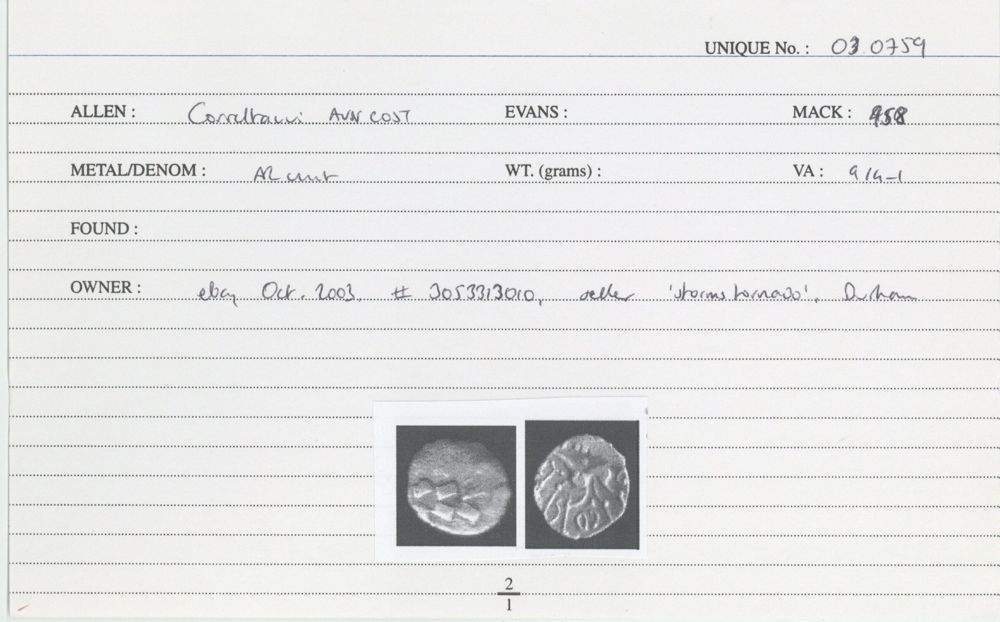 UNIQUE No. : 03.0759
ALLEN : Corieltauvi AVN COST EVANS : MACK : 458
METAL/DENOM : AR unit WT. (grams) : VA : 914-1
FOUND :
OWNER : ebay Oct. 2003. # 3053313010, seller 'stormstornado', Durham
2
1